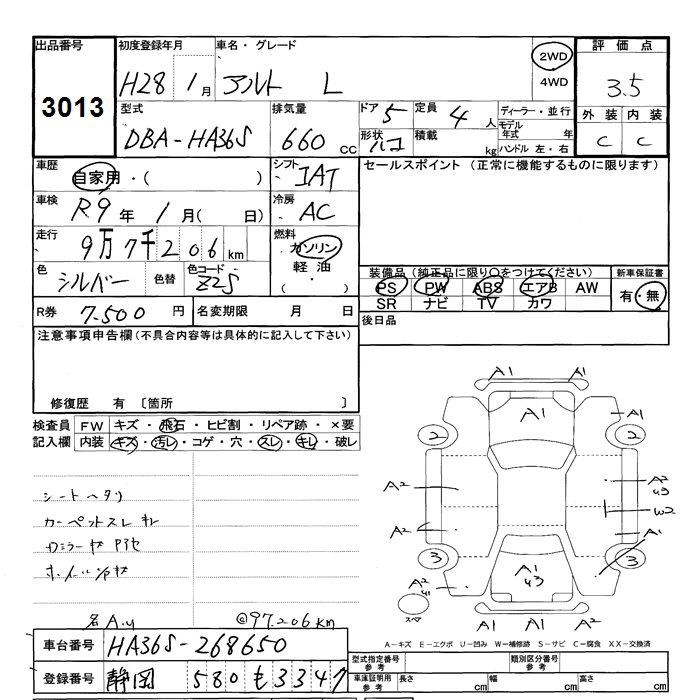 出品番号 初度登録年月 車名・グレード 2WD 評価点
3013 H28 1月 アルト L 4WD 3.5
型式 排気量 ドア 5 定員 4人 ディーラー・並行 外装 内装
DBA-HA36S 660cc 形状 ハコ 積載 kg モデル年式 年 C C
ハンドル 左・右
車歴 自家用・( ) シフト IAT セールスポイント (正常に機能するものに限ります)
車検 R9年 1月( 日) 冷房 AC
走行 9万7千206km 燃料 ガソリン
軽油
・( )
色 シルバー 色替 色コード Z2S 装備品 (純正品に限り○をつけてください) 新車保証書
PS PW ABS エアB AW 有・無
SR ナビ TV カワ
R券 7.500円 名変期限 月 日 後日品
注意事項申告欄(不具合内容等は具体的に記入して下さい)
修復歴 有 〔箇所 〕
検査員 FW キズ・飛石・ヒビ割・リペア跡・×要
記入欄 内装 キズ・汚レ・コゲ・穴・スレ・キレ・破レ
A1 A1
A1 A1
2 2
A2 A2 U3
W2
A2 A1
3 3
A1 U3
A2
スペア
A1 A1 A1
シートヘタリ
カーペットスレ キレ
@97.206km
A-キズ E-エクボ U-凹み W-補修跡 S-サビ C-腐食 XX-交換済
車台番号 HA36S-268650 型式指定番号 参考 類別区分番号 参考
登録番号 静岡 580 も 3347 車庫証明用 参考 長さ cm 幅 cm 高さ cm